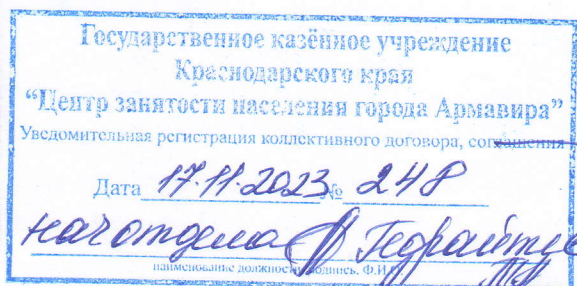 Государственное казённое учреждение
Краснодарского края
“Центр занятости населения города Армавира”
Уведомительная регистрация коллективного договора, соглашения
Дата 17.11.2023 № 248
нач отдела
наименование должности, подпись, Ф.И.О.